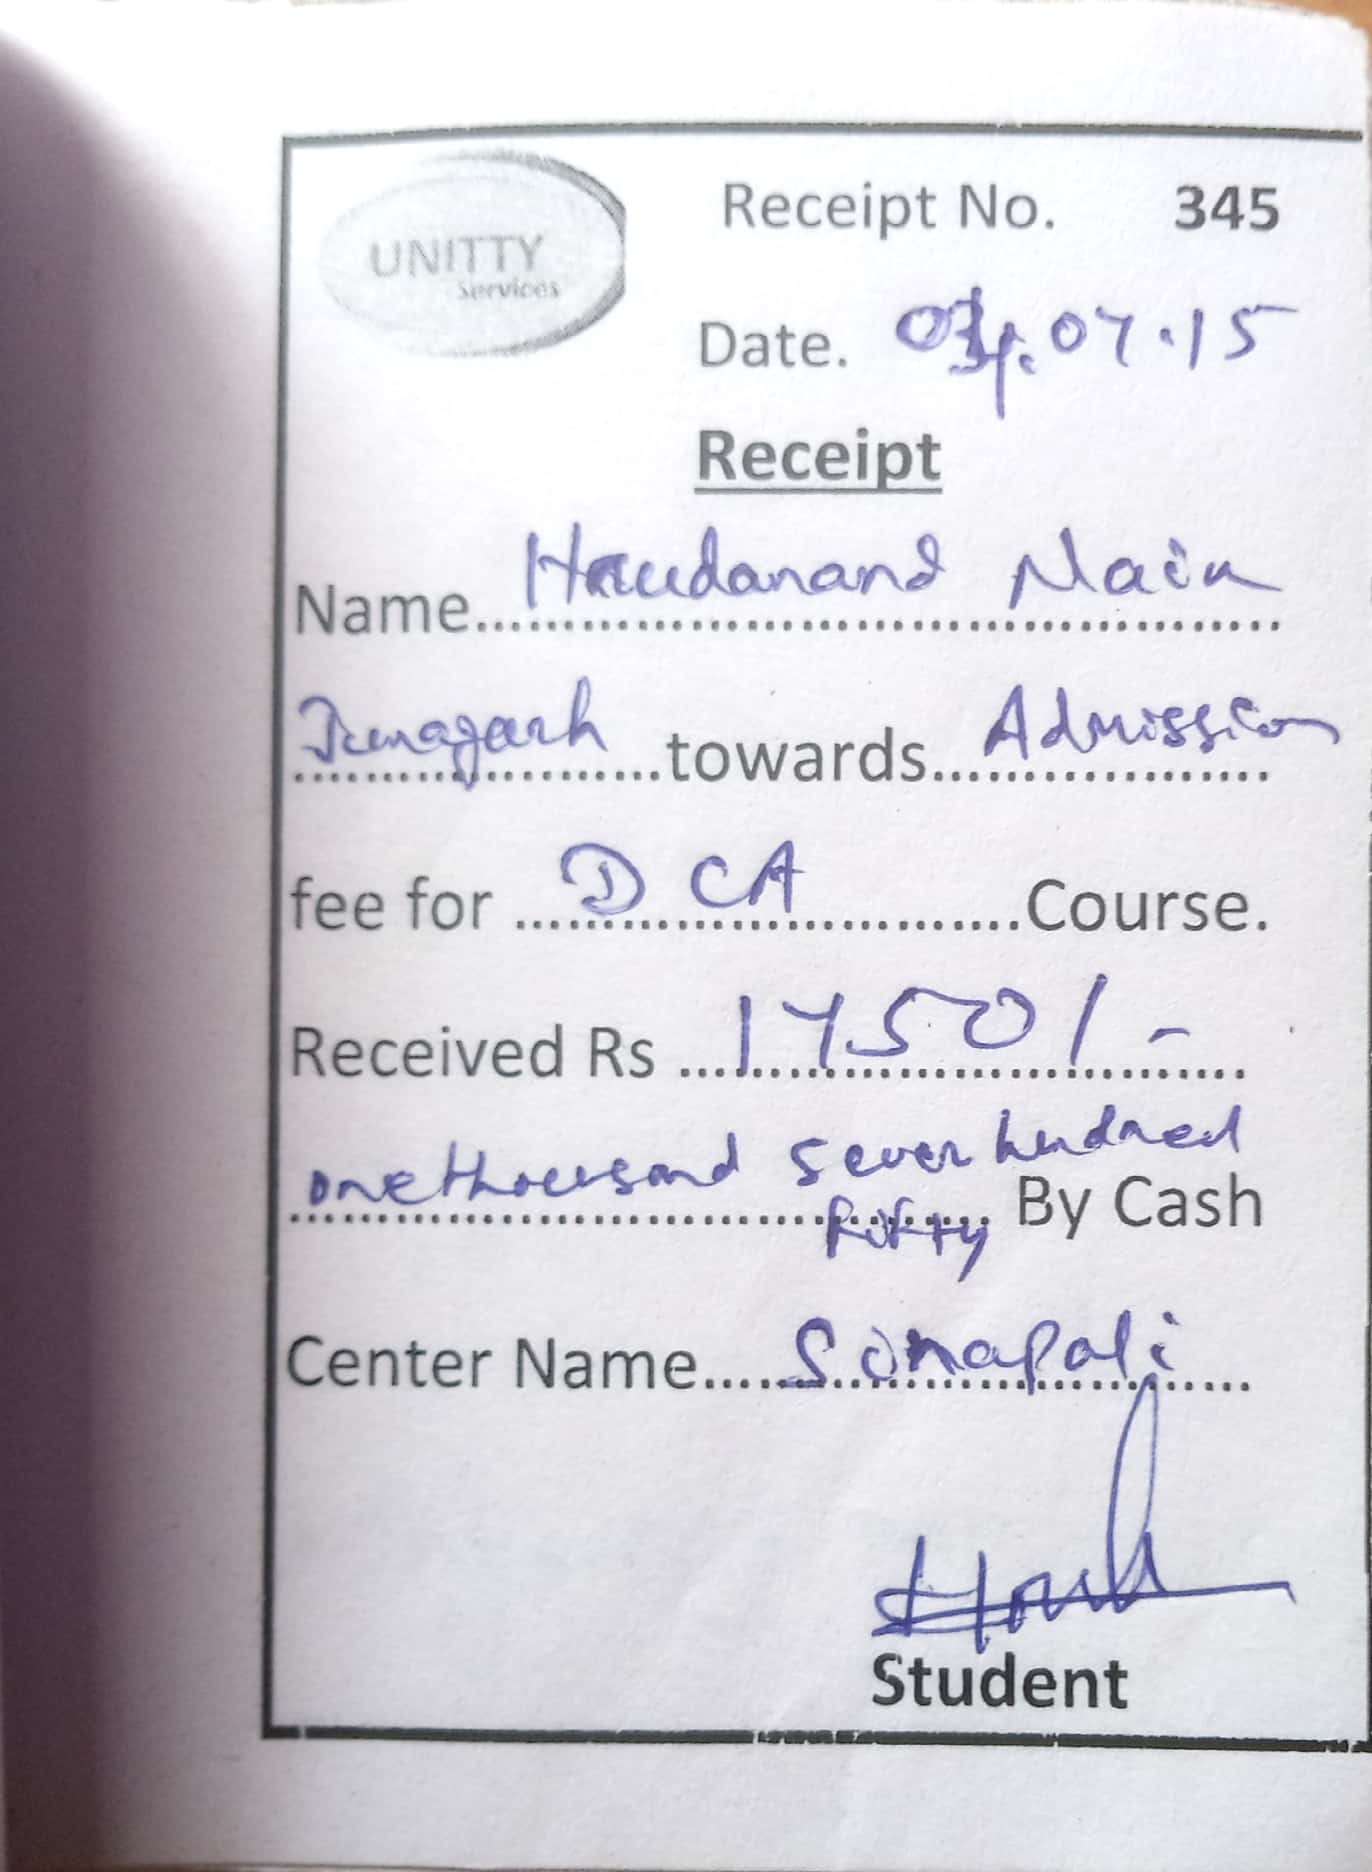 UNITTY
Services
Receipt No. 345
Date. 07.15
Receipt
Name.......... Naik
Junagarh towards Admission
fee for DCA Course.
Received Rs 1750/-
one thousand seven hundred
fifty By Cash
Center Name Sinapali
Student